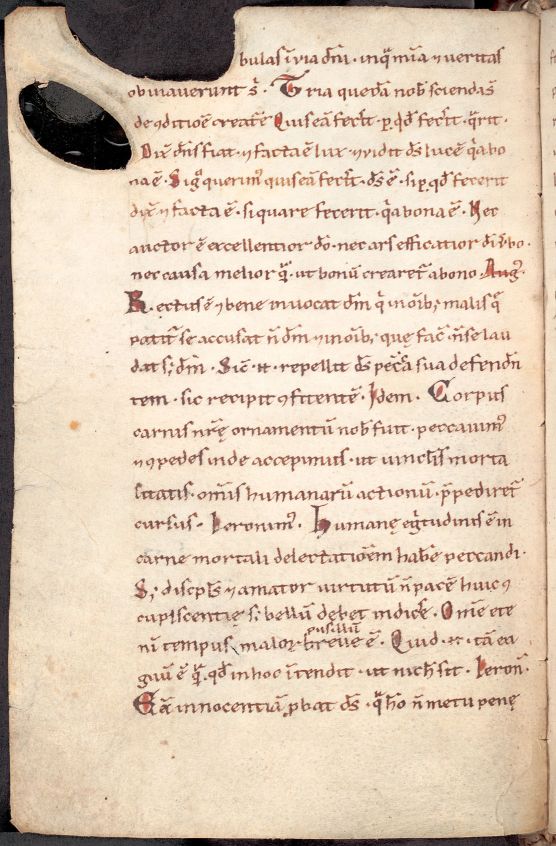 bulas i uia dñi · in qͣ mia ⁊ ueritas
obuiauerunt s̄ · Tria quedā nob̄ sciendas
de ꝯditiōe creat̄e Quis eā fecit · ꝑ qd̄ fecit · qͣrit ·
Dix̄ dn̄s fiat · ⁊ facta ē lux · ⁊ uidit ds̄ lucē qͣ bo
na ē · Si gͦ querim᷒ quis eā fecit · ds̄ ē · si ꝑ qd̄ fecerit
dix̄ ⁊ facta ē · si quare fecerit · qͣ bona ē · Nec
auctor ē excellentior dō · nec ars efficatior di ūbo ·
nec causa melior qͣ · ut bonū crearet̄ a bono · Aug᷒
Rectus ē ⁊ bene inuocat dn̄m qͥ in oīb; malis qͥ
patit᷑ se accusat n̄ dn̄m ⁊ in oīb; quę fac̄ n̄ se lau
dat s; dn̄m · Sic̄ · n̄ · repellit ds̄ peccā sua defendn̄
tem · sic recipit ꝯfitentē · Idem · Corpus
carnis nr̄ę ornamentū nob̄ fuit · peccauim᷒
⁊ ꝯpedes inde accepimus · ut uinclis morta
litatis · om̄is humanarū actionū p̄pediret̄
cursus · Ieronim᷒ · Humanę eḡtudinis ē in
carne mortali delectatiōem hab̄e peccandi ·
S; discipl̄s ⁊ amator uirtutū n̄ pacē huic ꝯ
cupiscentie s; bellū debet indic̄e · Om̄e ete
ni tempus malor᷑ breue pusillū ē · Quid · n̄ · tā ea
guū ē qͣ qd̄ in hoc itendit · ut nich̄ sit · Ieron̄ ·
Eā innocentiā ꝓbat ds̄ · qͣ hō n̄ metu penę